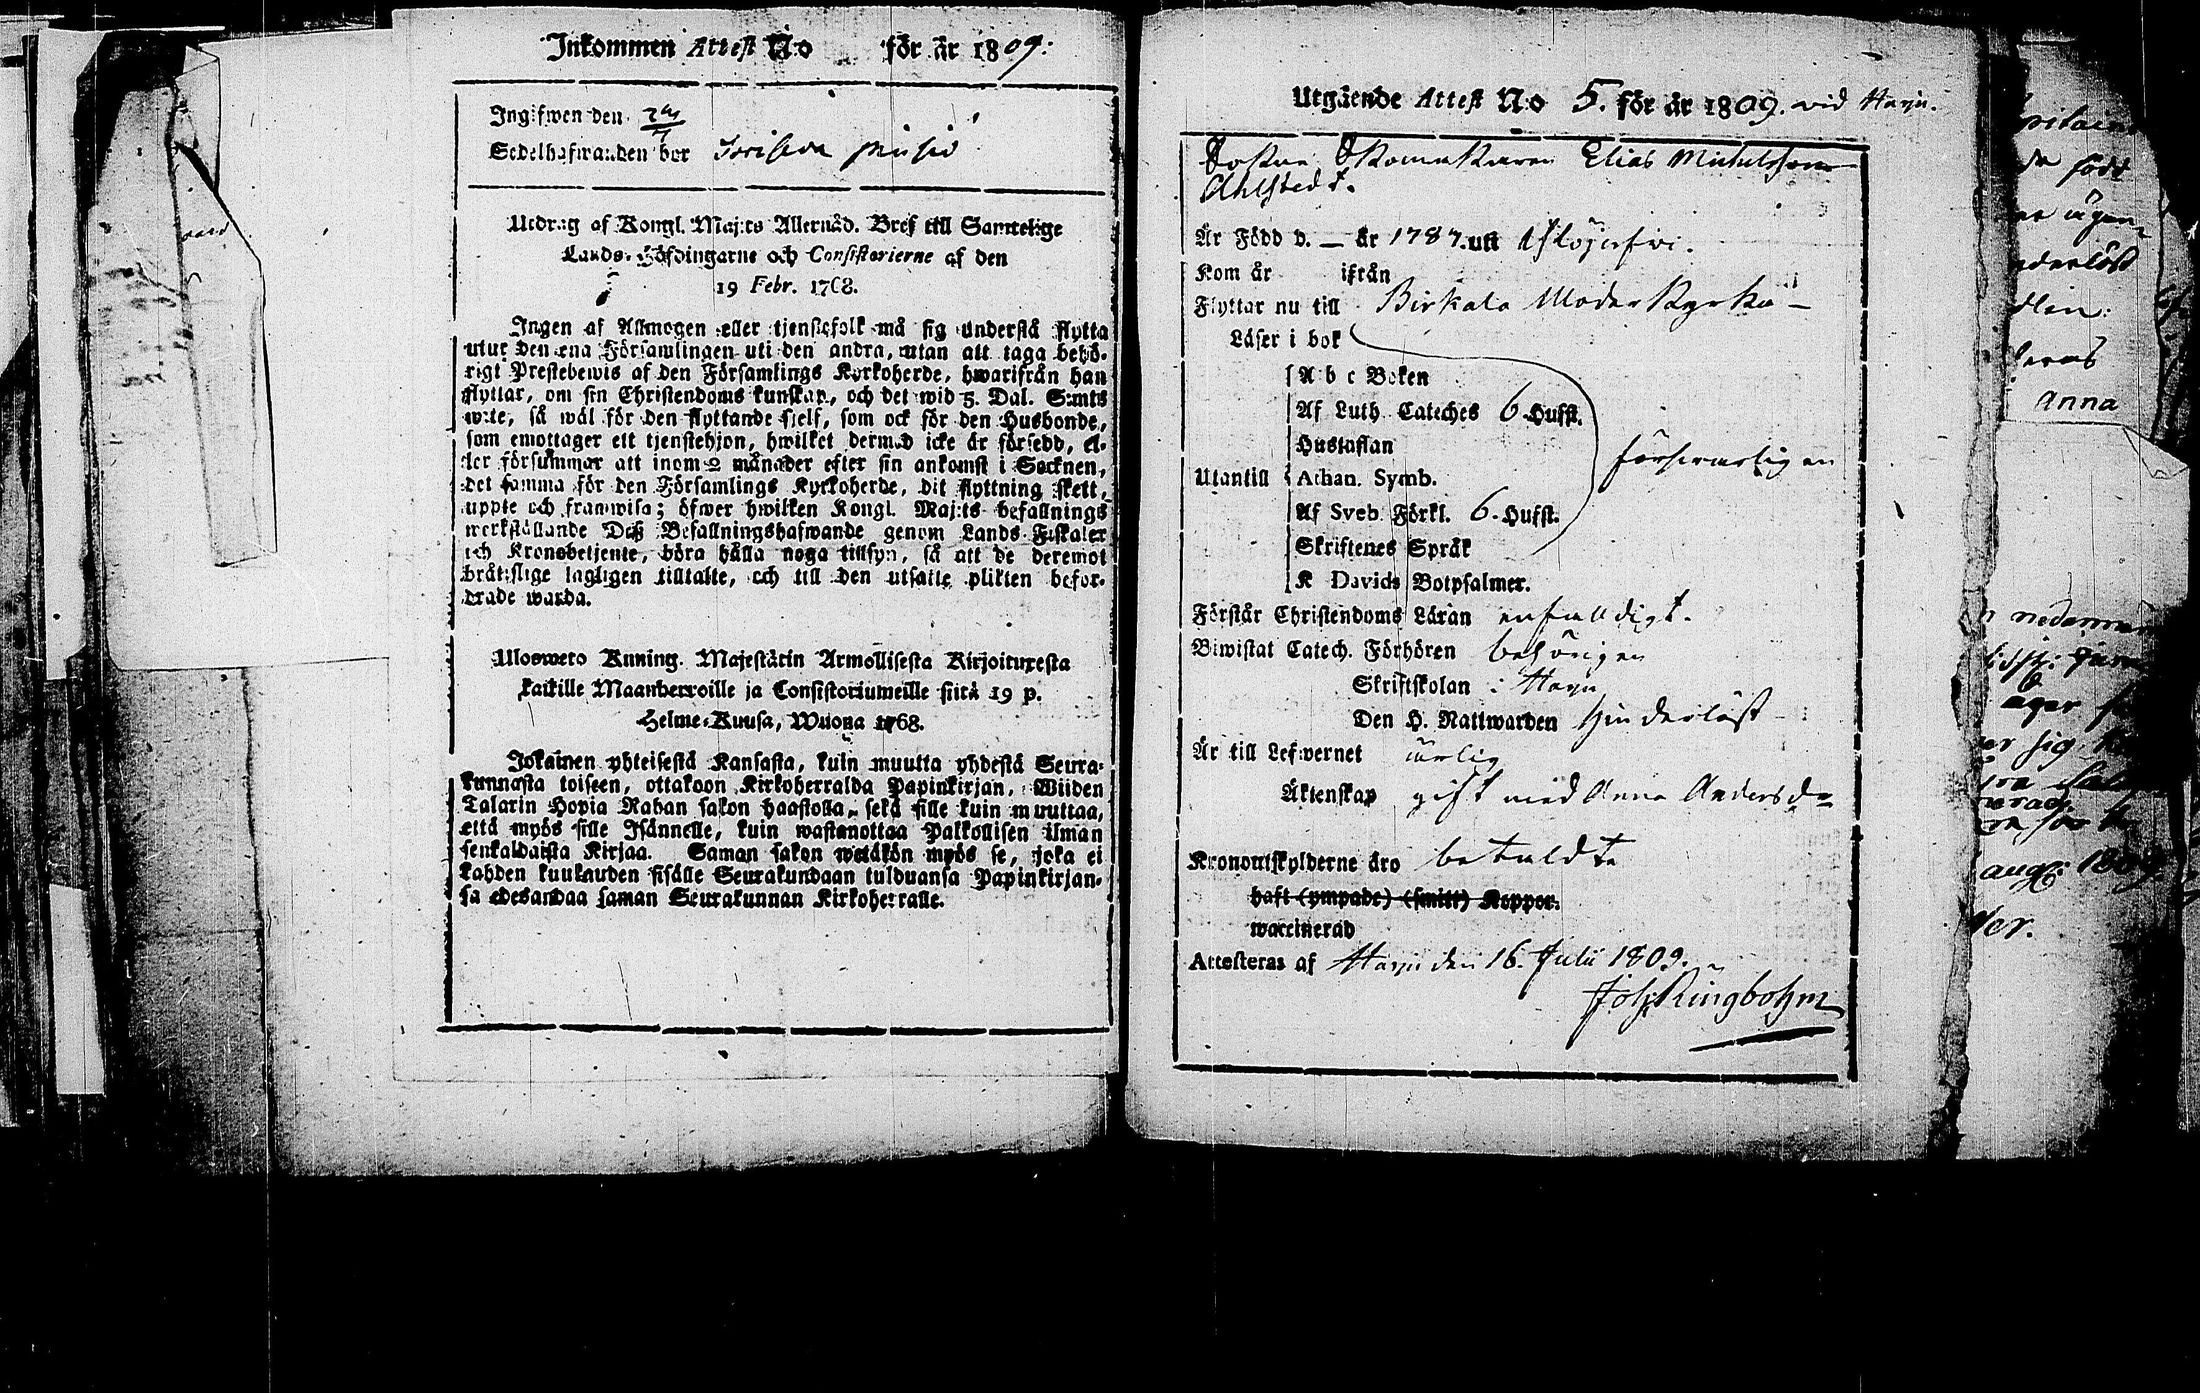 Inkommen Attest N:o för år 1809.
Ingifwen den
Sedelhafwanden bor
Utdrag af Kongl. Maj:ts Allernåd. Bref till Samtelige
Lands-Höfdingarne och Consistorierne af den
19 Febr. 1768.
Ingen af Allmogen eller tjenstefolk må sig understå flytta
utur den ena Församlingen uti den andra, utan att taga behö-
rigt Prestebewis af den Församlings Kyrkoherde, hwarifrån han
flyttar, om sin Christendoms kunskap, och det wid 5. Dal. S:mts
wite, så wäl för den flyttande sjelf, som ock för den Husbonde,
som emottager ett tjenstehjon, hwilket dermed icke är försedd, el-
ler försummar att inom 2 månader efter sin ankomst i Socknen,
det samma för den Församlings Kyrkoherde, dit flyttning skett,
uppte och framwisa; öfwer hwilken Kongl. Maj:ts befallnings
werkställande Deß Befallningshafwande genom Lands-Fiskaler
och Kronobetjente, böra hålla noga tillsyn, så att de deremot
bråtslige lagligen tilltalte, och till den utsatte plikten befor-
drade warda.
Ulosweto Kuning. Majestätin Armollisesta Kirjoituxesta
kaikille Maanherroille ja Consistoriumeille siitä 19 p.
Helme-Kuusa, Wuona 1768.
Jokainen yhteisestä Kansasta, kuin muutta yhdestä Seura-
kunnasta toiseen, ottakoon Kirkoherralda Papinkirjan, Wiiden
Talarin Hopia Rahan sakon haastolla, sekä sille kuin muuttaa,
että myös sille Isännelle, kuin wastanottaa Palkollisen ilman
senkaldaista Kirjaa. Saman sakon wetäkön myös se, joka ei
kahden kuukauden sisälle Seurakundaan tulduansa Papinkirjan-
sa edesandaa saman Seurakunnan Kirkoherralle.
Utgående Attest N:o 5. för år 1809. vid Harju.
Sokne Skomakaren Elias Michelsson
Ahlstedt.
Är Född d. — år 1787. uti Ylöjerfvi.
Kom år ifrån
Flyttar nu till Birkala Moderkyrko —
Läser i bok
A b c Boken
Af Luth. Cateches 6 Hufst.
Hustaflan
Utantill Athan. Symb.
försvarligen
Af Sveb. Förkl. 6. Hufst.
Skriftenes Språk
K Davids Botpsalmer.
Förstår Christendoms Läran enfaldigt.
Biwistat Catech. Förhören behörigen
Skriftskolan i Harju
Den H. Nattwarden hinderlöst
Är till Lefwernet ärlig
Äktenskap gift med Anna Andersdr
Kronoutskylderne äro betaldte
haft (ympade) (smitt) Koppor.
waccinerad
Attesteras af Harju den 16. Julii 1809.
Joh. Ringbohm
född
Anna
nedanna
äger
sig
aug: 1809.